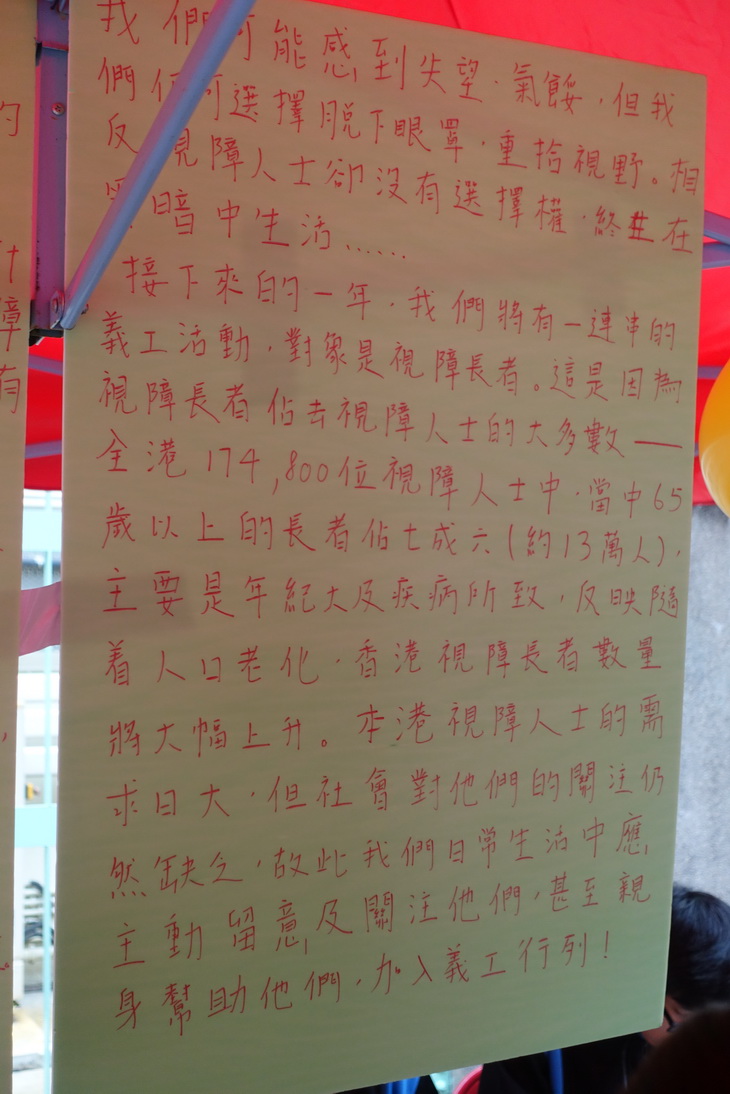 我們可能感到失望、氣餒，但我
們 可選擇脫下眼罩，重拾視野。相
反 視障人士卻沒有選擇權，終生在
暗中生活……
接下來的一年，我們將有一連串的
義工活動，對象是視障長者。這是因為
視障長者佔去視障人士的大多數——
全港174,800位視障人士中，當中65
歲以上的長者佔七成六(約13萬人)，
主要是年紀大及疾病所致，反映隨
着人口老化，香港視障長者數量
將大幅上升。本港視障人士的需
求日大，但社會對他們的關注仍
然缺乏，故此我們日常生活中應
主動留意及關注他們，甚至親
身幫助他們，加入義工行列！
的
障
有